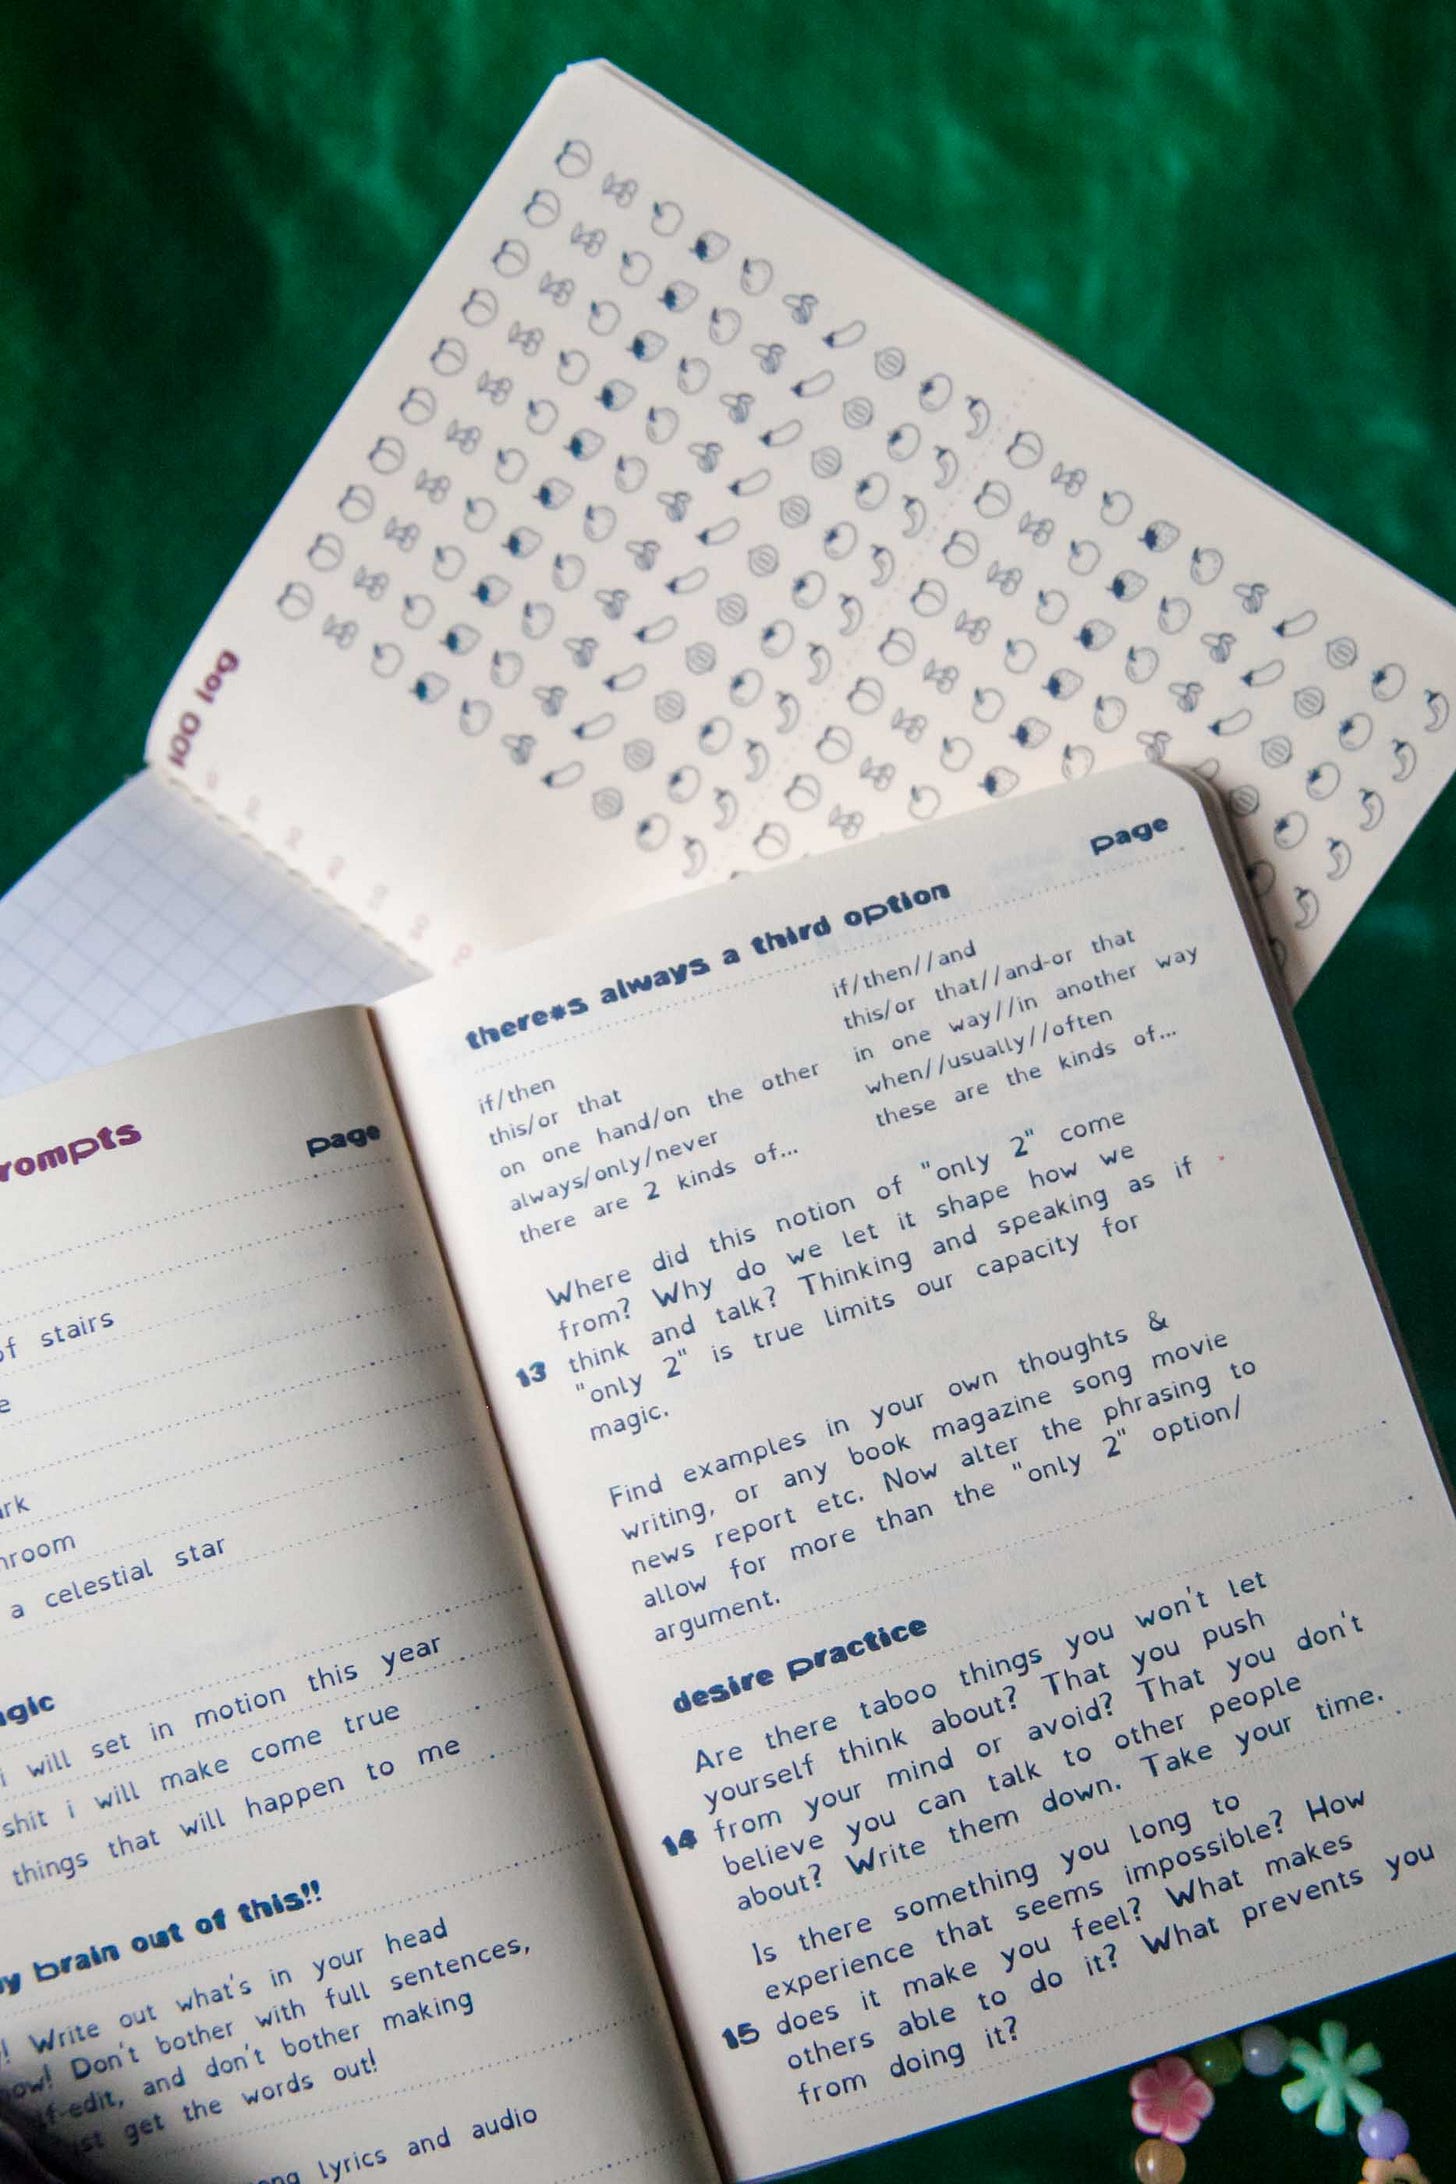 100 log
rompts
page
of stairs
a celestial star
i will set in motion this year
shit i will make come true
things that will happen to me
brain out of this!!
! Write out what's in your head
Don't bother with full sentences,
and don't bother making
get the words out!
lyrics and audio
page
there*s always a third option
if/then
this/or that
on one hand/on the other
always/only/never
there are 2 kinds of...
if/then//and
this/or that//and-or that
in one way//in another way
when//usually//often
these are the kinds of...
13
Where did this notion of "only 2" come
from? Why do we let it shape how we
think and talk? Thinking and speaking as if
"only 2" is true limits our capacity for
magic.
Find examples in your own thoughts &
writing, or any book magazine song movie
news report etc. Now alter the phrasing to
allow for more than the "only 2" option/
argument.
desire practice
14
Are there taboo things you won't let
yourself think about? That you push
from your mind or avoid? That you don't
believe you can talk to other people
about? Write them down. Take your time.
15
Is there something you long to
experience that seems impossible? How
does it make you feel? What makes
others able to do it? What prevents you
from doing it?